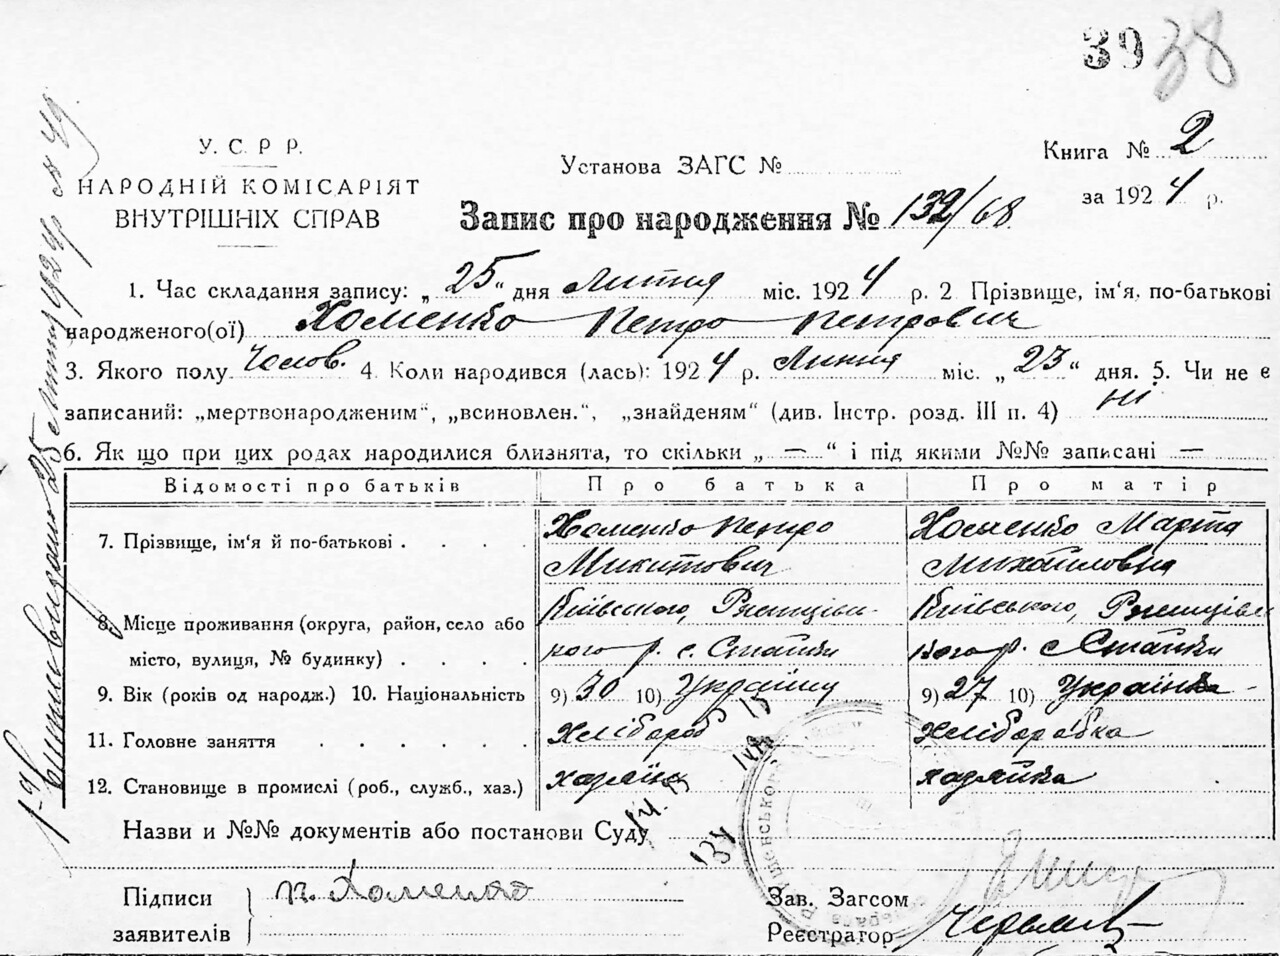 39 38
У. С. Р. Р.
НАРОДНІЙ КОМІСАРІЯТ
ВНУТРІШНІХ СПРАВ
Установа ЗАГС №
Книга № 2
за 1924 р.
Запис про народження № 132/68
1. Час складання запису: „25“ дня Лютня міс. 1924 р. 2 Прізвище, ім‘я, по-батькові
народженого(ої) Хоменко Петро Петрович
3. Якого полу Челов. 4. Коли народився (лась): 1924 р. Лютня міс. „23“ дня. 5. Чи не є
записаний: „мертвонародженим“, „всиновлен.“, „знайденям“ (див. Інстр. розд. III п. 4) ні
6. Як що при цих родах народилися близнята, то скільки „ — “ і під якими №№ записані —
Відомості про батьків Про батька Про матір
7. Прізвище, ім‘я й по-батькові Хоменко Петро Хоменко Марта
Микитович Михайловна
8. Місце проживання (округа, район, село або Київського, Ржищівс- Київського, Ржищівс
місто, вулиця, № будинку) кого р. с. Стайки кого р. с Стайки
9. Вік (років од народж.) 10. Національність 9) 30 10) Україницу 9) 27 10) Українка
11. Головне заняття Хлібороб Хліборобка
12. Становище в промислі (роб., служб., хаз.) хазяїн хазяйка
Назви и №№ документів або постанови Суду
Підписи п. Хоменко Зав. Загсом
заявителів Реєстратор